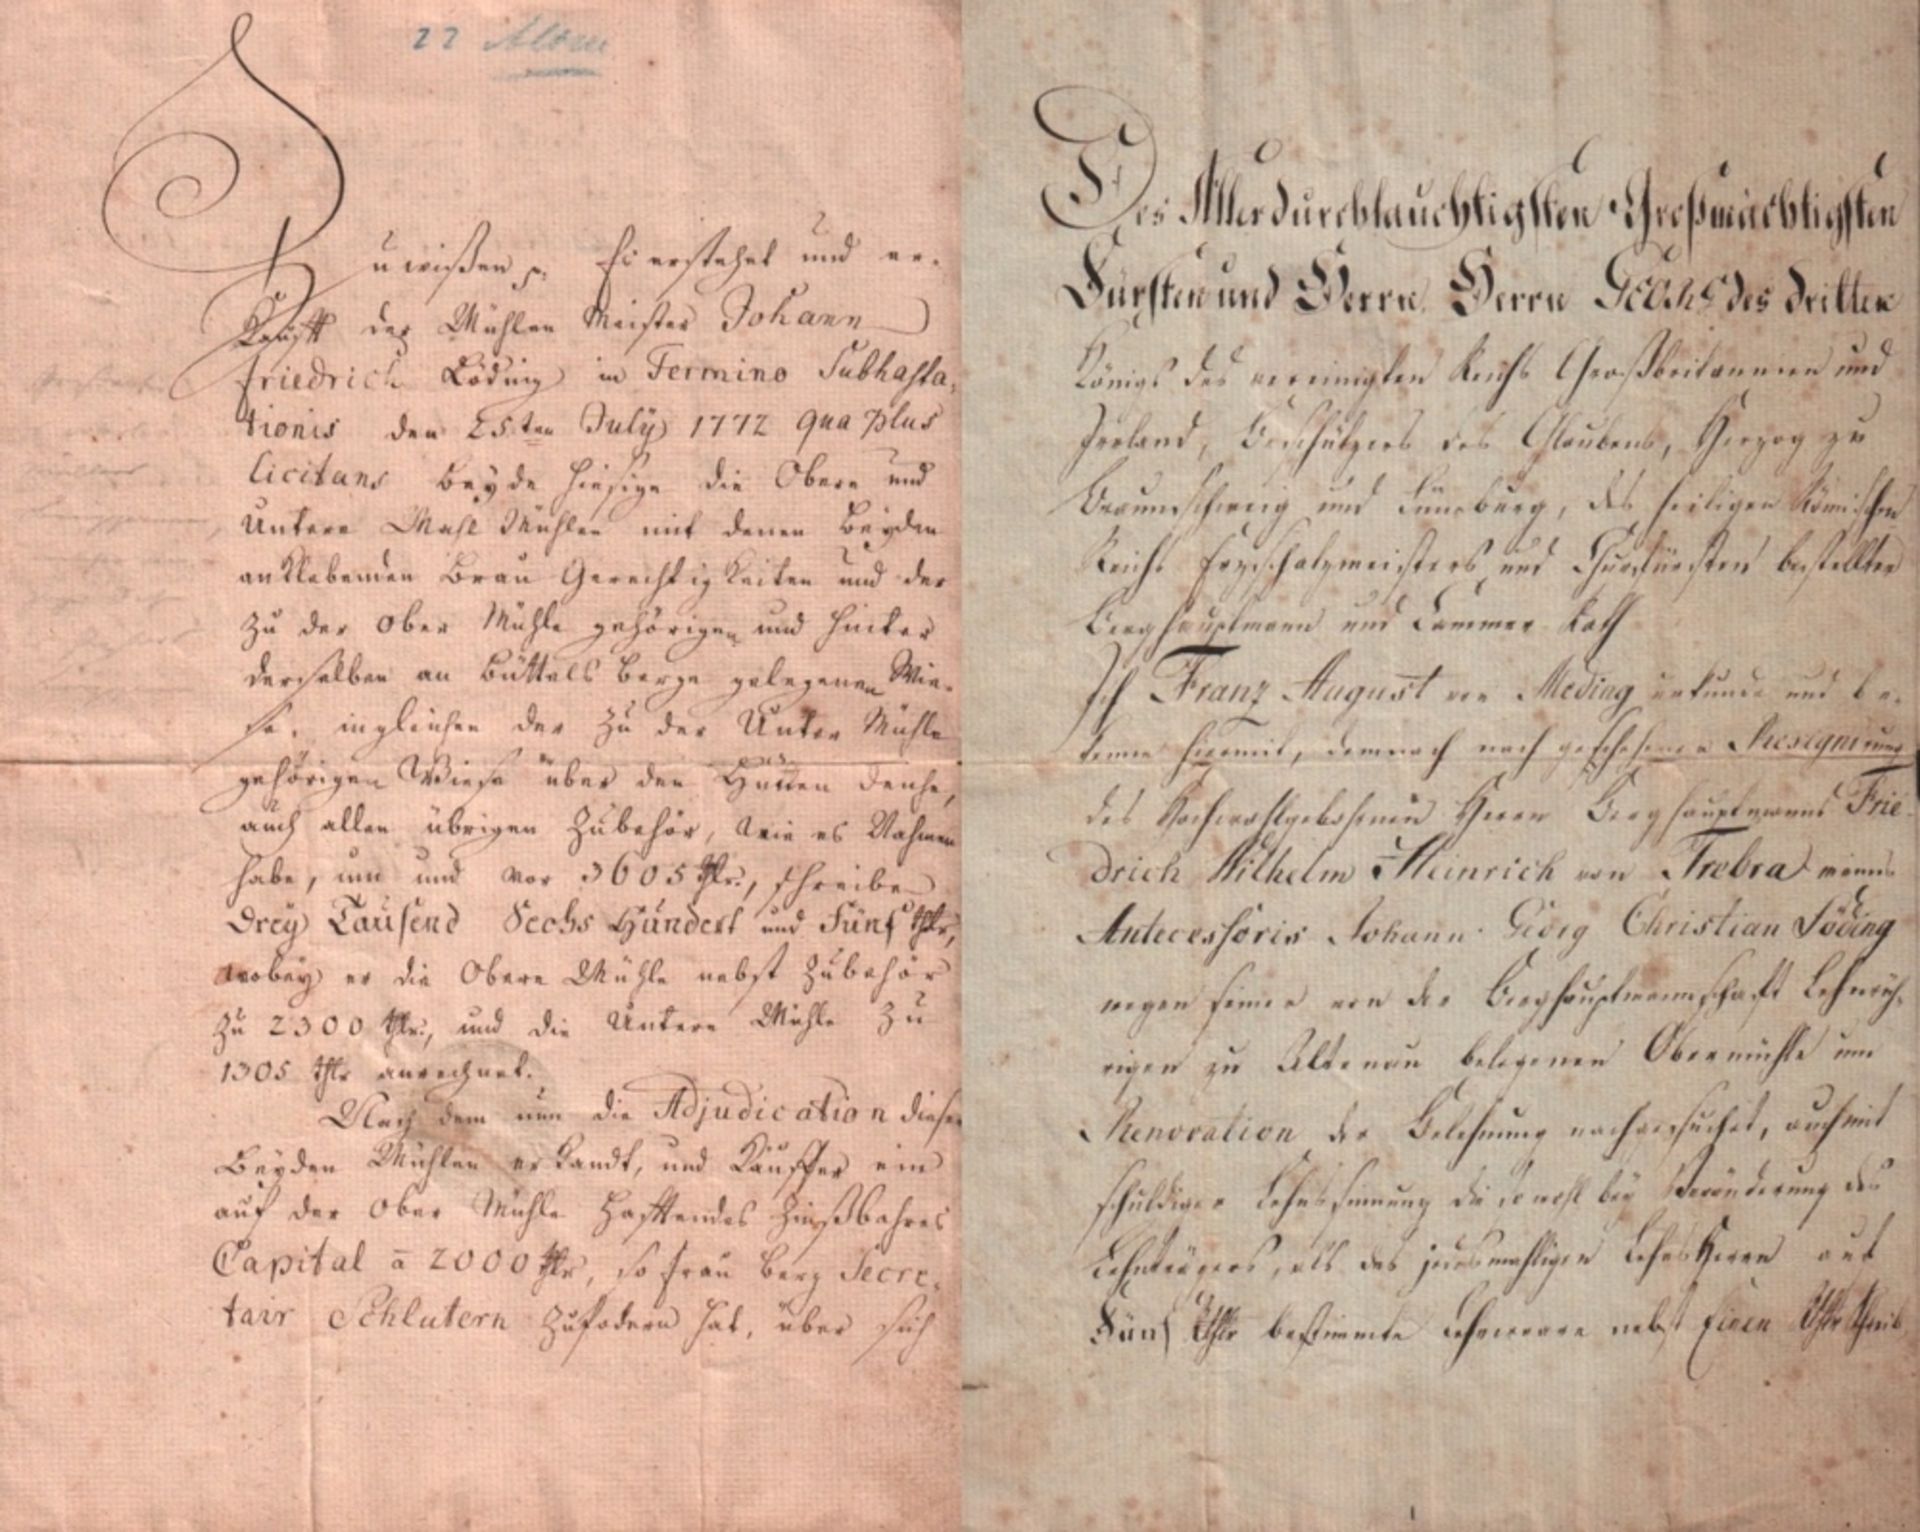 22
Zu wißen p. Es erstehet und er-
Kaufft der Mühlen Meister Johann
Friedrich Söding in Termino Subhasta,
tionis den 25ten July 1772 qua plus
licitans beyde hiesige die Obere und
Untere Mahl Mühlen mit denen beyden
anklebenden Brau Gerechtigkeiten und der
zu der Ober Mühle gehörigen und hinter
derselben an Büttels Berge gelegenen Wie-
se, ingleichen der zu der Unter Mühle
gehörigen Wiese über den Hütten Teiche,
auch allen übrigen Zubehör, wie es Nahmen
habe, um und vor 3605 thlr., schreibe
Drey Tausend Sechs Hundert und Fünf thlr,
wobey er die Obere Mühle nebst Zubehör
zu 2300 thlr., und die Untere Mühle zu
1305 thlr anrechnet.
Nach dem nun die Adjudication dieser
Beyden Mühlen erkandt, und Käuffer ein
auf der Ober Mühle hafftendes Zinßbahres
Capital a 2000 thlr, so Frau Berg Secre,
tair Schlutern zufodern hat, über sich
Des Allerdurchlauchtigsten Großmächtigsten
Fürsten und Herrn Herrn Georg des dritten
Königs des vereinigten Reichs Großbritannien und
Irrland, Beschützers des Glaubens, Herzog zu
Braunschweig und Lüneburg, des heiligen Römischen
Reichs Erzschatzmeisters und Churfürsten bestellter
Berghauptmann und Cammer Rath
Ich Franz August von Meding urkunde und be-
kenne hiermit, demnach nach geschehener Resignirung
des Hochwohlgebohrnen Herrn Berghauptmanns Frie-
drich Wilhelm Heinrich von Trebra meines
Antecessoris Johann Georg Christian Söding
wegen seiner von der Berghauptmannschaft Lehnrüh-
rigen zu Altenau belegenen Obermühle um
Renovation der Belehnung nachgesuchet, auch mit
schuldiger Lehnssinnung die sowohl bey Veränderung des
Lehnträgers, als des jedesmahligen Lehns Herrn auf
Fünf Thlr bestimmte Lehnwaare nebst Einen Thlr Schreib